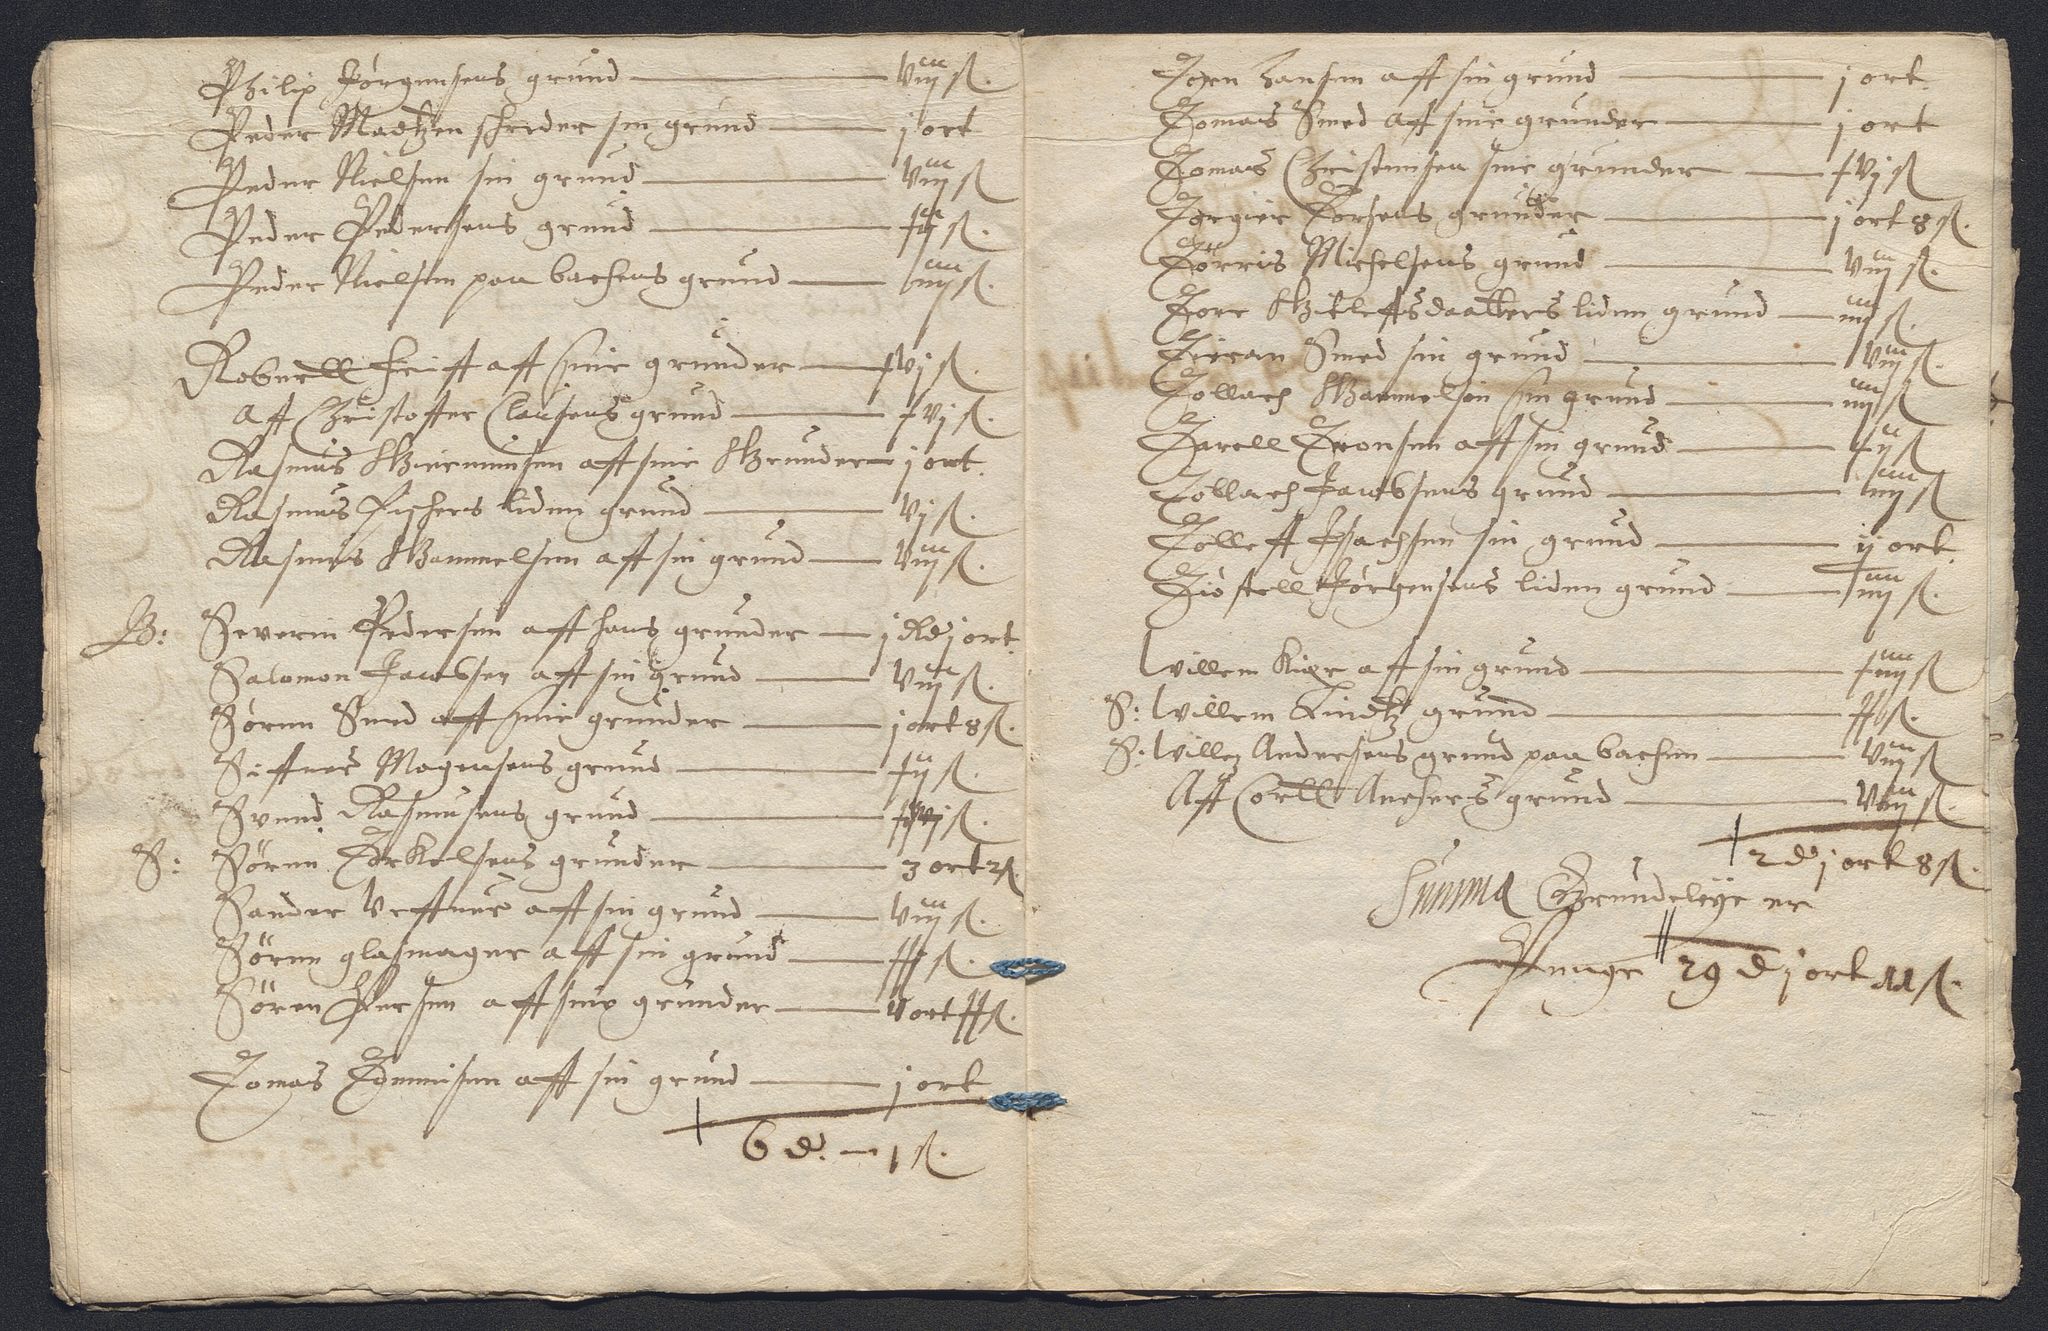 Philip Jørgensens grund — viij ß.
Peder Madtzen schreder sin grund — j ort
Peder Nielsen sin grund — viij ß
Peder Pedersens grund — xij ß.
Peder Nielsen paa bachens grund — ß.
Robertt aff sine grunder — xvj ß.
Aff Christoffer Clausens grund — xvj ß.
Rasmus aff sine Grunder — j ort.
Rasmus Fischers liden grund — vj ß.
Rasmus Gammelsen aff sin grund — viij ß.
B: Severin Pedersen aff hans grunder — j Rd j ort.
Salomon Jacobsen aff sin grund — viij ß.
Søren Smed aff sine grunder — j ort 8 ß.
Siffuer Mogensens grund — xij ß.
Suend Rasmusens grund — ß.
S: Søren Torkelsens grunder — 3 ort 2 ß.
Sander aff sin grund — viij ß.
Søren glasmager aff sin grund — ß.
Søren Persen aff sine grunder — ort ß.
Tomas Tommisen aff sin grund — j ort
6 d. — 1 ß.
Toen Hansen aff sin grund — j ort.
Tomas Smed aff sine grunder — j ort
Tomas Christensen sine grunder — xvj ß
Torgier Torsens grunder — j ort 8 ß.
Tørris Michelsens grund — viij ß.
Tore daatters liden grund — iiij ß.
Smed sin grund — viij ß.
Tollach Gammelsøn sin grund — iiij ß
Tarall Tronsen aff sin grund — xij ß
Tollach Jacobsens grund — ß
Tolleff Isachsen sin grund — ij ort
Tiøstell Jørgensens liden grund — ß.
Willem aff sin grund — ß
S: Willem Lindtz grund — ß.
S: Willem Andersens grund paa bachen — viij ß
Aff Cortt Anchers grund — ß.
2 d j ort 8 ß.
Summa Grundeleye er
Penge 29 d j ort 11 ß.